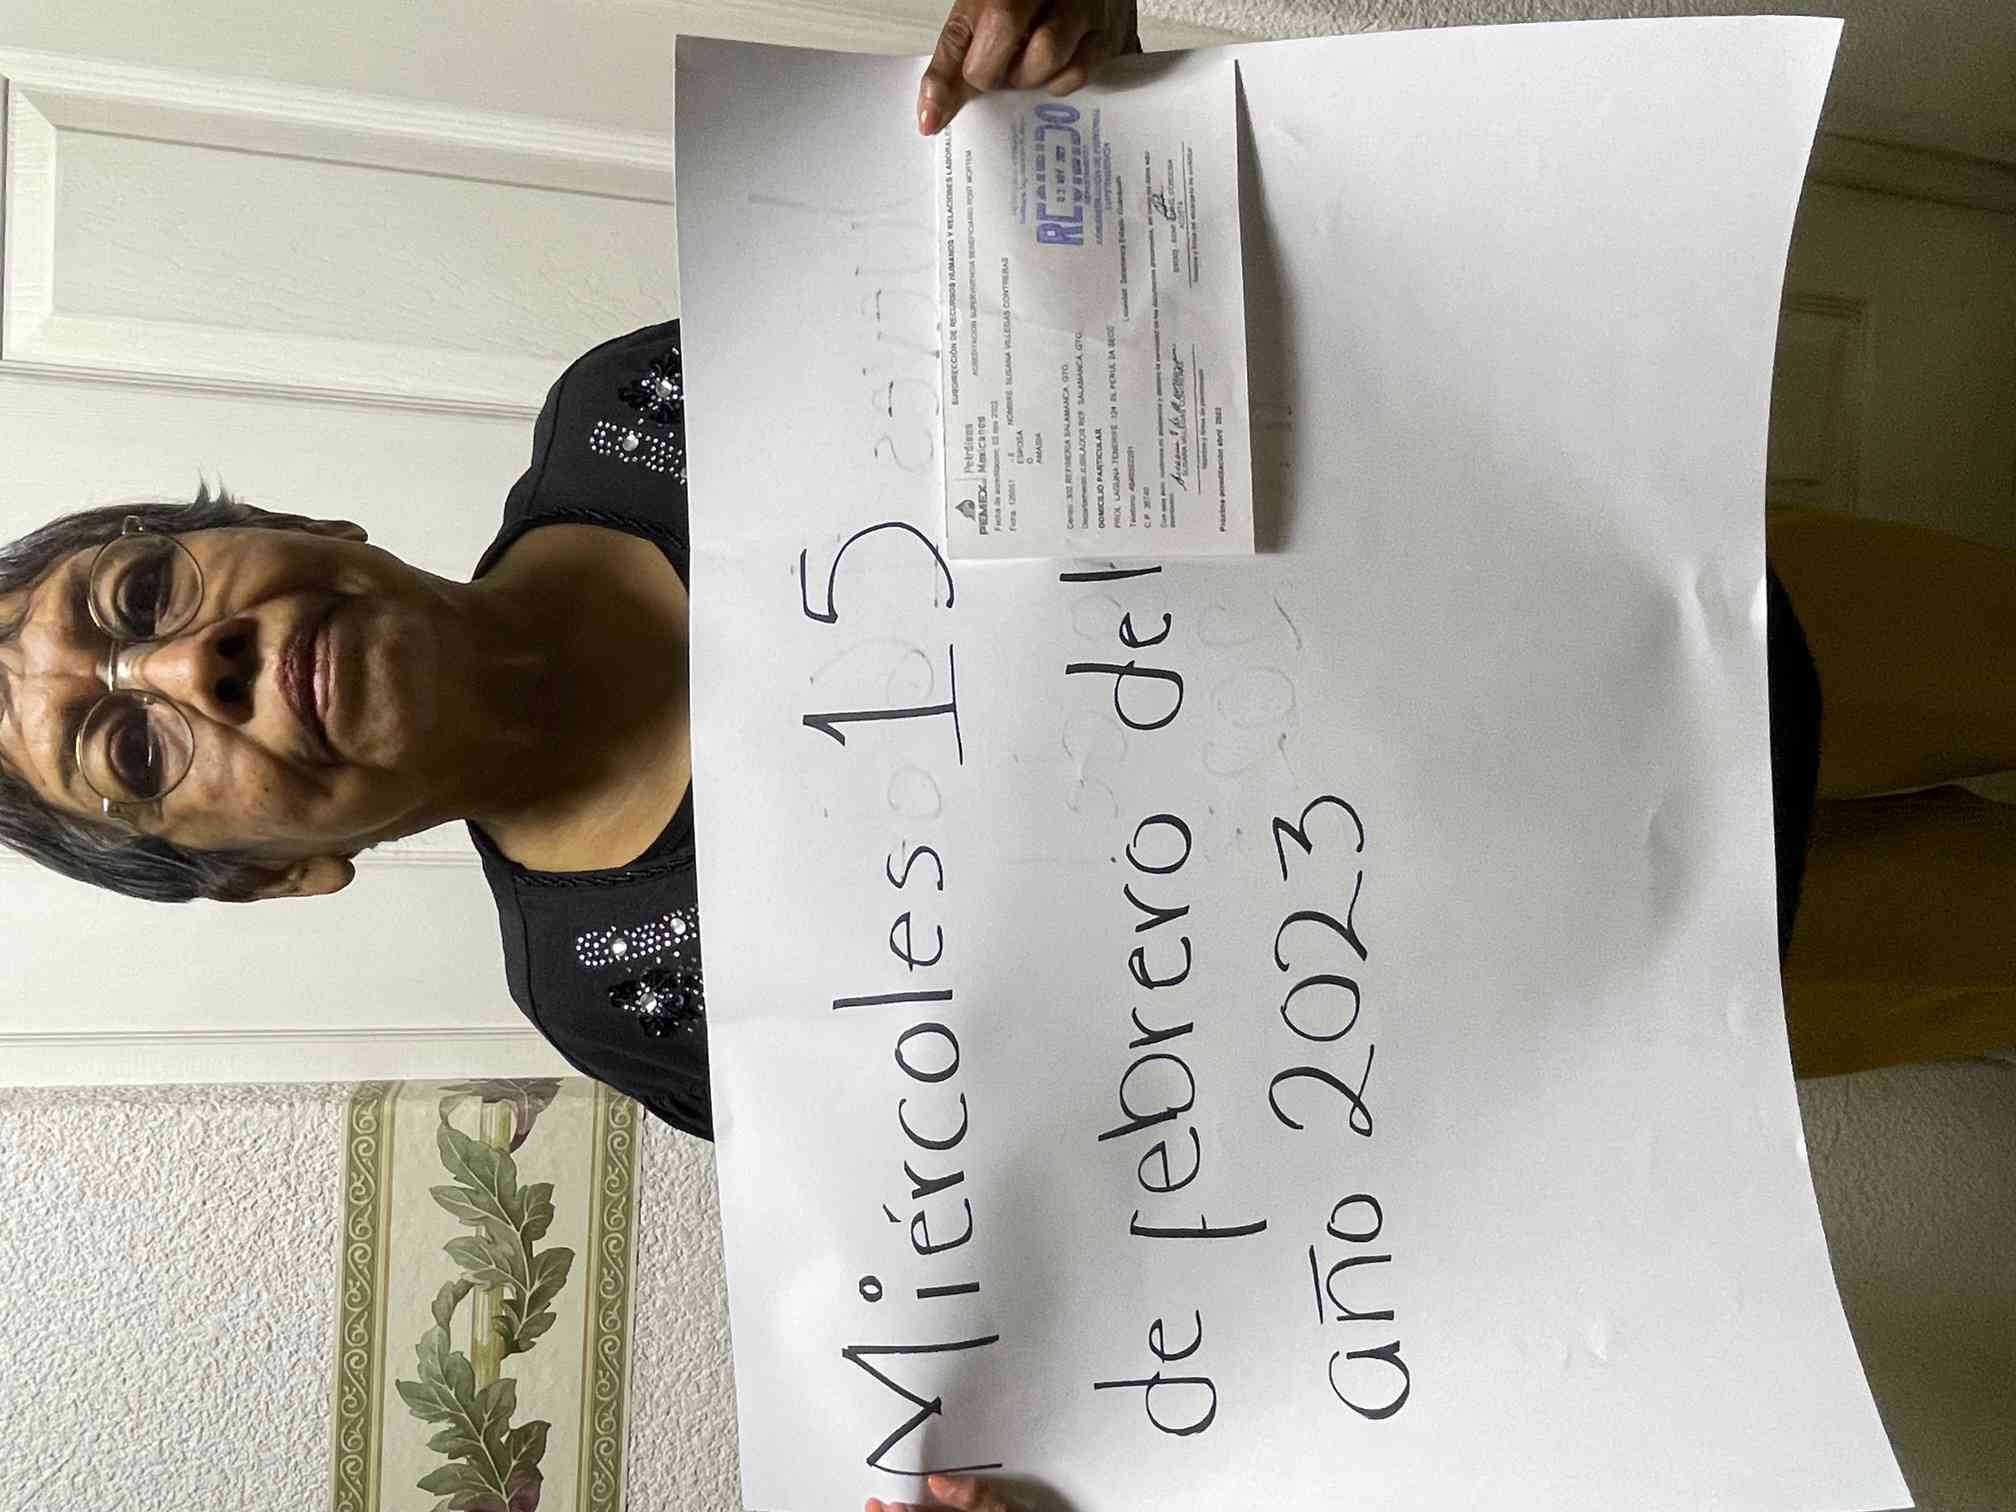 Miércoles 15
de febrero del
año 2023
PEMEX
Petróleos
Mexicanos
SUBDIRECCIÓN DE RECURSOS HUMANOS Y RELACIONES LABORALES
ACREDITACION SUPERVIVENCIA BENEFICIARIO POST MORTEM
Fecha de acreditación: 03 nov 2022
Ficha 
NOMBRE SUSANA VILLEGAS CONTRERAS
ESPOSA
O
AMASIA
RECIBIDO
03 NOV. 2022
DEPARTAMENTO
ADMINISTRACIÓN DE PERSONAL
SUPERVISIÓN
Centro: 302 REFINERIA SALAMANCA, GTO.
Departamento JUBILADOS REF. SALAMANCA, GTO.
DOMICILIO PARTICULAR
PROL LAGUNA TENERIFE 124 EL PERUL 2A SECC
Localidad Salamanca Estado Guanajuato
Teléfono
C.P. 36740
SUSANA VILLEGAS CONTRERAS
Nombre y firma de pensionado
ACOSTA
Próxima acreditación abril 2023